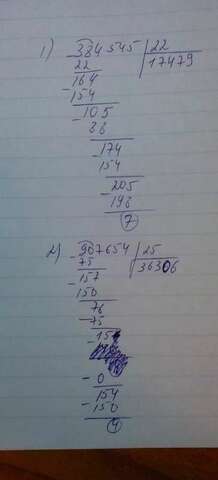 1) 384545 | 22
- 22 | 17479
164
- 154
105
- 88
174
- 154
205
- 198
7
2) 907654 | 25
- 75 | 36306
157
- 150
76
- 75
15
- 0
154
- 150
4